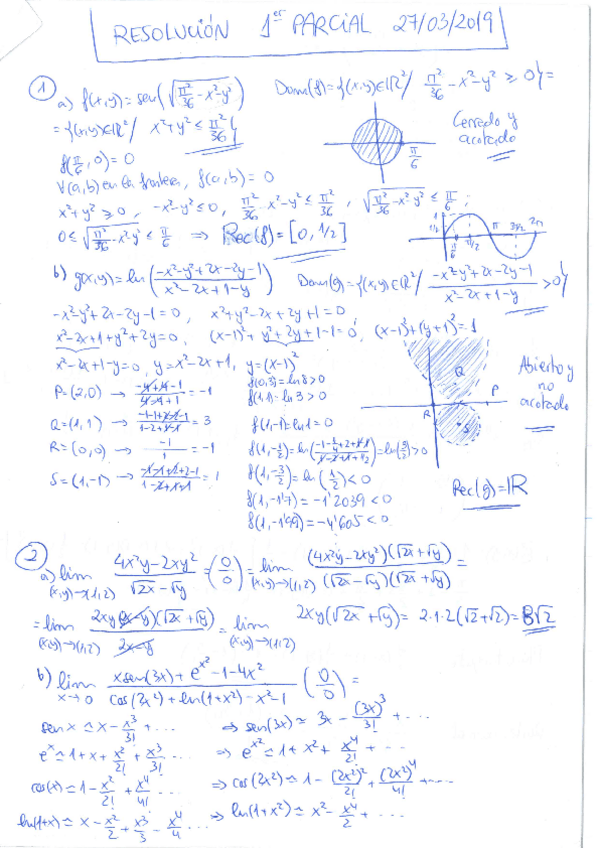 RESOLUCIÓN 1er PARCIAL 27/03/2019
① a) f(x,y) = sen(√(π²/36 - x² - y²)) Dom(f) = {(x,y)∈ℝ² / π²/36 - x² - y² ≥ 0} =
= {(x,y)∈ℝ² / x² + y² ≤ π²/36}
π/6
Cerrado y acotado
f(π/6, 0) = 0
∀(a,b) en la frontera, f(a,b) = 0
x² + y² ≥ 0, -x² - y² ≤ 0, π²/36 - x² - y² ≤ π²/36, √(π²/36 - x² - y²) ≤ π/6;
0 ≤ √(π²/36 - x² - y²) ≤ π/6 ⇒ Rec(f) = [0, 1/2]
1 1/2 π/6 π/2 π 3π/2 2π
b) g(x,y) = ln((-x² - y² + 2x - 2y - 1)/(x² - 2x + 1 - y)) Dom(g) = {(x,y)∈ℝ² / (-x² - y² + 2x - 2y - 1)/(x² - 2x + 1 - y) > 0}
-x² - y² + 2x - 2y - 1 = 0, x² + y² - 2x + 2y + 1 = 0
x² - 2x + 1 + y² + 2y = 0, (x-1)² + y² + 2y + 1 - 1 = 0, (x-1)² + (y+1)² = 1
x² - 2x + 1 - y = 0, y = x² - 2x + 1, y = (x-1)²
P = (2,0) → (-4+4-1)/(4-4+1) = -1
Q = (1,1) → (-1-1+2-2-1)/(1-2+1-1) = 3
R = (0,0) → -1/1 = -1
S = (1,-1) → (-1-1+2+2-1)/(1-2+1+1) = 1
f(0,3) = ln 8 > 0
f(1,1) = ln 3 > 0
f(1,-1) = ln 1 = 0
f(1,-1/2) = ln() = ln() > 0
f(1,-3/2) = ln(1/2) < 0
f(1,-1'7) = -1'2039 < 0
f(1,-1'99) = -4'605 < 0
Q P R S
Abierto y no acotado
Rec(g) = ℝ
② a) lim (x,y)→(1,2) (4x²y - 2xy²)/(√2x - √y) = (0/0) = lim (x,y)→(1,2) ((4x²y - 2xy²)(√2x + √y))/((√2x - √y)(√2x + √y)) =
= lim (x,y)→(1,2) (2xy(2x-y)(√2x + √y))/(2x-y) = lim (x,y)→(1,2) 2xy(√2x + √y) = 2·1·2(√2 + √2) = 8√2
b) lim x→0 (x sen(3x) + e^(x²) - 1 - 4x²)/(cos(2x²) + ln(1+x²) - x² - 1) (0/0) =
sen x ≃ x - x³/3! + ··· ⇒ sen(3x) ≃ 3x - (3x)³/3! + ···
e^x ≃ 1 + x + x²/2! + x³/3! ··· ⇒ e^(x²) ≃ 1 + x² + x⁴/2! + ···
cos(x) ≃ 1 - x²/2! + x⁴/4! ··· ⇒ cos(2x²) ≃ 1 - (2x²)²/2! + (2x²)⁴/4! + ····
ln(1+x) ≃ x - x²/2 + x³/3 - x⁴/4 ··· ⇒ ln(1+x²) ≃ x² - x⁴/2 + ···